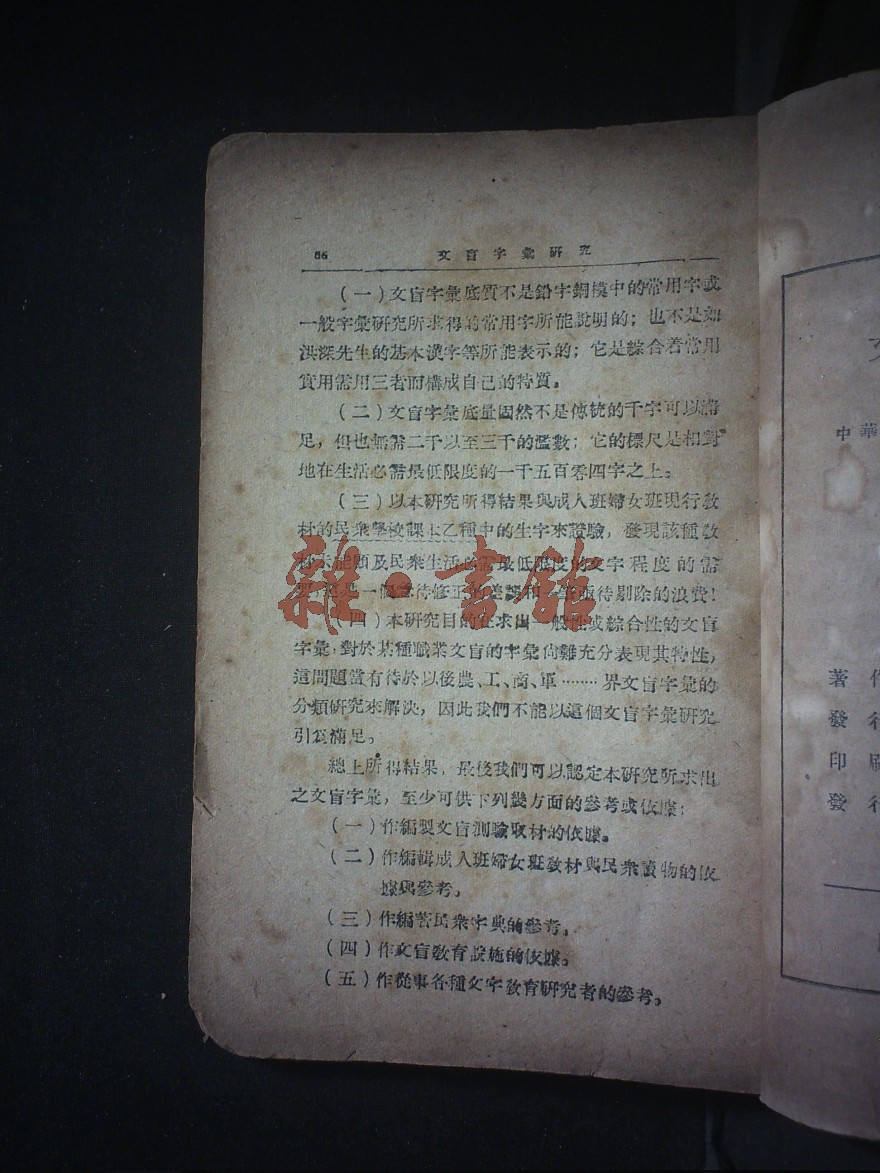 66 文盲字彙研究
（一）文盲字彙底質不是鉛字銅模中的常用字或
一般字彙研究所求得的常用字所能說明的；也不是如
洪深先生的基本漢字等所能表示的；它是綜合着常用
實用需用三者而構成自己的特質。
（二）文盲字彙底量固然不是傳統的千字可以滿
足，但也無需二千以至三千的濫數；它的標尺是相對
地在生活必需最低限度的一千五百零四字之上。
（三）以本研究所得結果與成人班婦女班現行教
材的民衆學校課本乙種中的生字來證驗，發現該種教
材未能顧及民衆生活必需最低限度的文字程度的需
要，是一個待修正的差誤和一筆待剔除的浪費！
（四）本研究目的在求出一般性或綜合性的文盲
字彙，對於某種職業文盲的字彙尙難充分表現其特性，
這問題當有待於以後農、工、商、軍………界文盲字彙的
分類研究來解決，因此我們不能以這個文盲字彙研究
引爲滿足。
總上所得結果，最後我們可以認定本研究所求出
之文盲字彙，至少可供下列幾方面的參考或依據：
（一）作編製文盲測驗取材的依據。
（二）作編輯成人班婦女班教材與民衆讀物的依
據與參考。
（三）作編著民衆字典的參考。
（四）作文盲教育設施的依據。
（五）作從事各種文字教育研究者的參考。
雜·書館
中華
著作
發行
印刷
發行